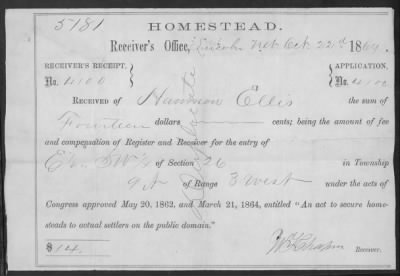 5781
HOMESTEAD.
Receiver's Office, Lincoln Neb Oct 22d 1869.
RECEIVER'S RECEIPT, APPLICATION,
No. 4100 No. 4100
RECEIVED OF Harrison Ellis the sum of
Fourteen dollars cents; being the amount of fee
and compensation of Register and Receiver for the entry of
E½ SW¼ of Section 26 in Township
9 N of Range 3 West under the acts of
Congress approved May 20, 1862, and March 21, 1864, entitled "An act to secure home-
steads to actual settlers on the public domain."
$14. Receiver.
Duplicate